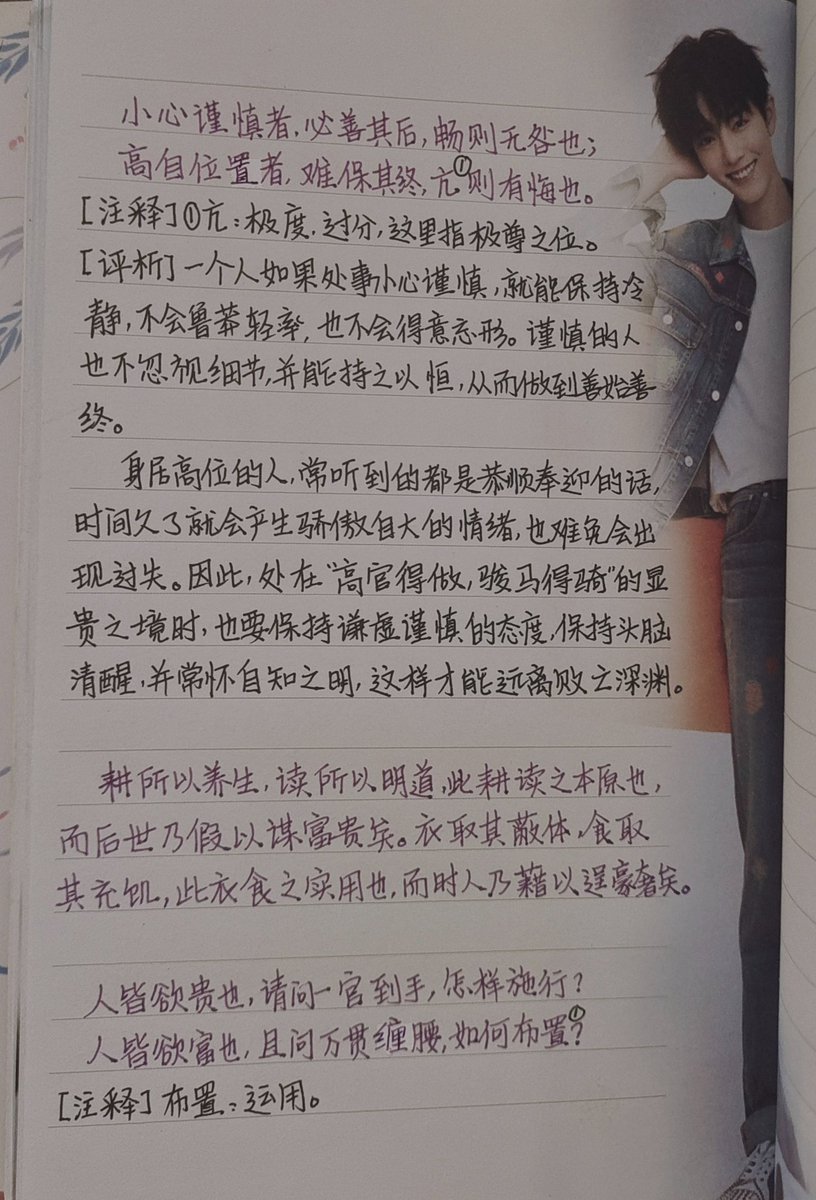 小心谨慎者,必善其后,畅则无咎也;
高自位置者,难保其终,亢①则有悔也。
[注释]①亢:极度,过分,这里指极尊之位。
[评析]一个人如果处事小心谨慎,就能保持冷
静,不会鲁莽轻率,也不会得意忘形。谨慎的人
也不忽视细节,并能持之以恒,从而做到善始善
终。
身居高位的人,常听到的都是恭顺奉迎的话,
时间久了就会产生骄傲自大的情绪,也难免会出
现过失。因此,处在“高官得做,骏马得骑”的显
贵之境时,也要保持谦虚谨慎的态度,保持头脑
清醒,并常怀自知之明,这样才能远离败亡深渊。
耕所以养生,读所以明道,此耕读之本原也,
而后世乃假以谋富贵矣。衣取其蔽体,食取
其充饥,此衣食之实用也,而时人乃藉以逞豪奢矣。
人皆欲贵也,请问一官到手,怎样施行?
人皆欲富也,且问万贯缠腰,如何布置①?
[注释]布置:运用。